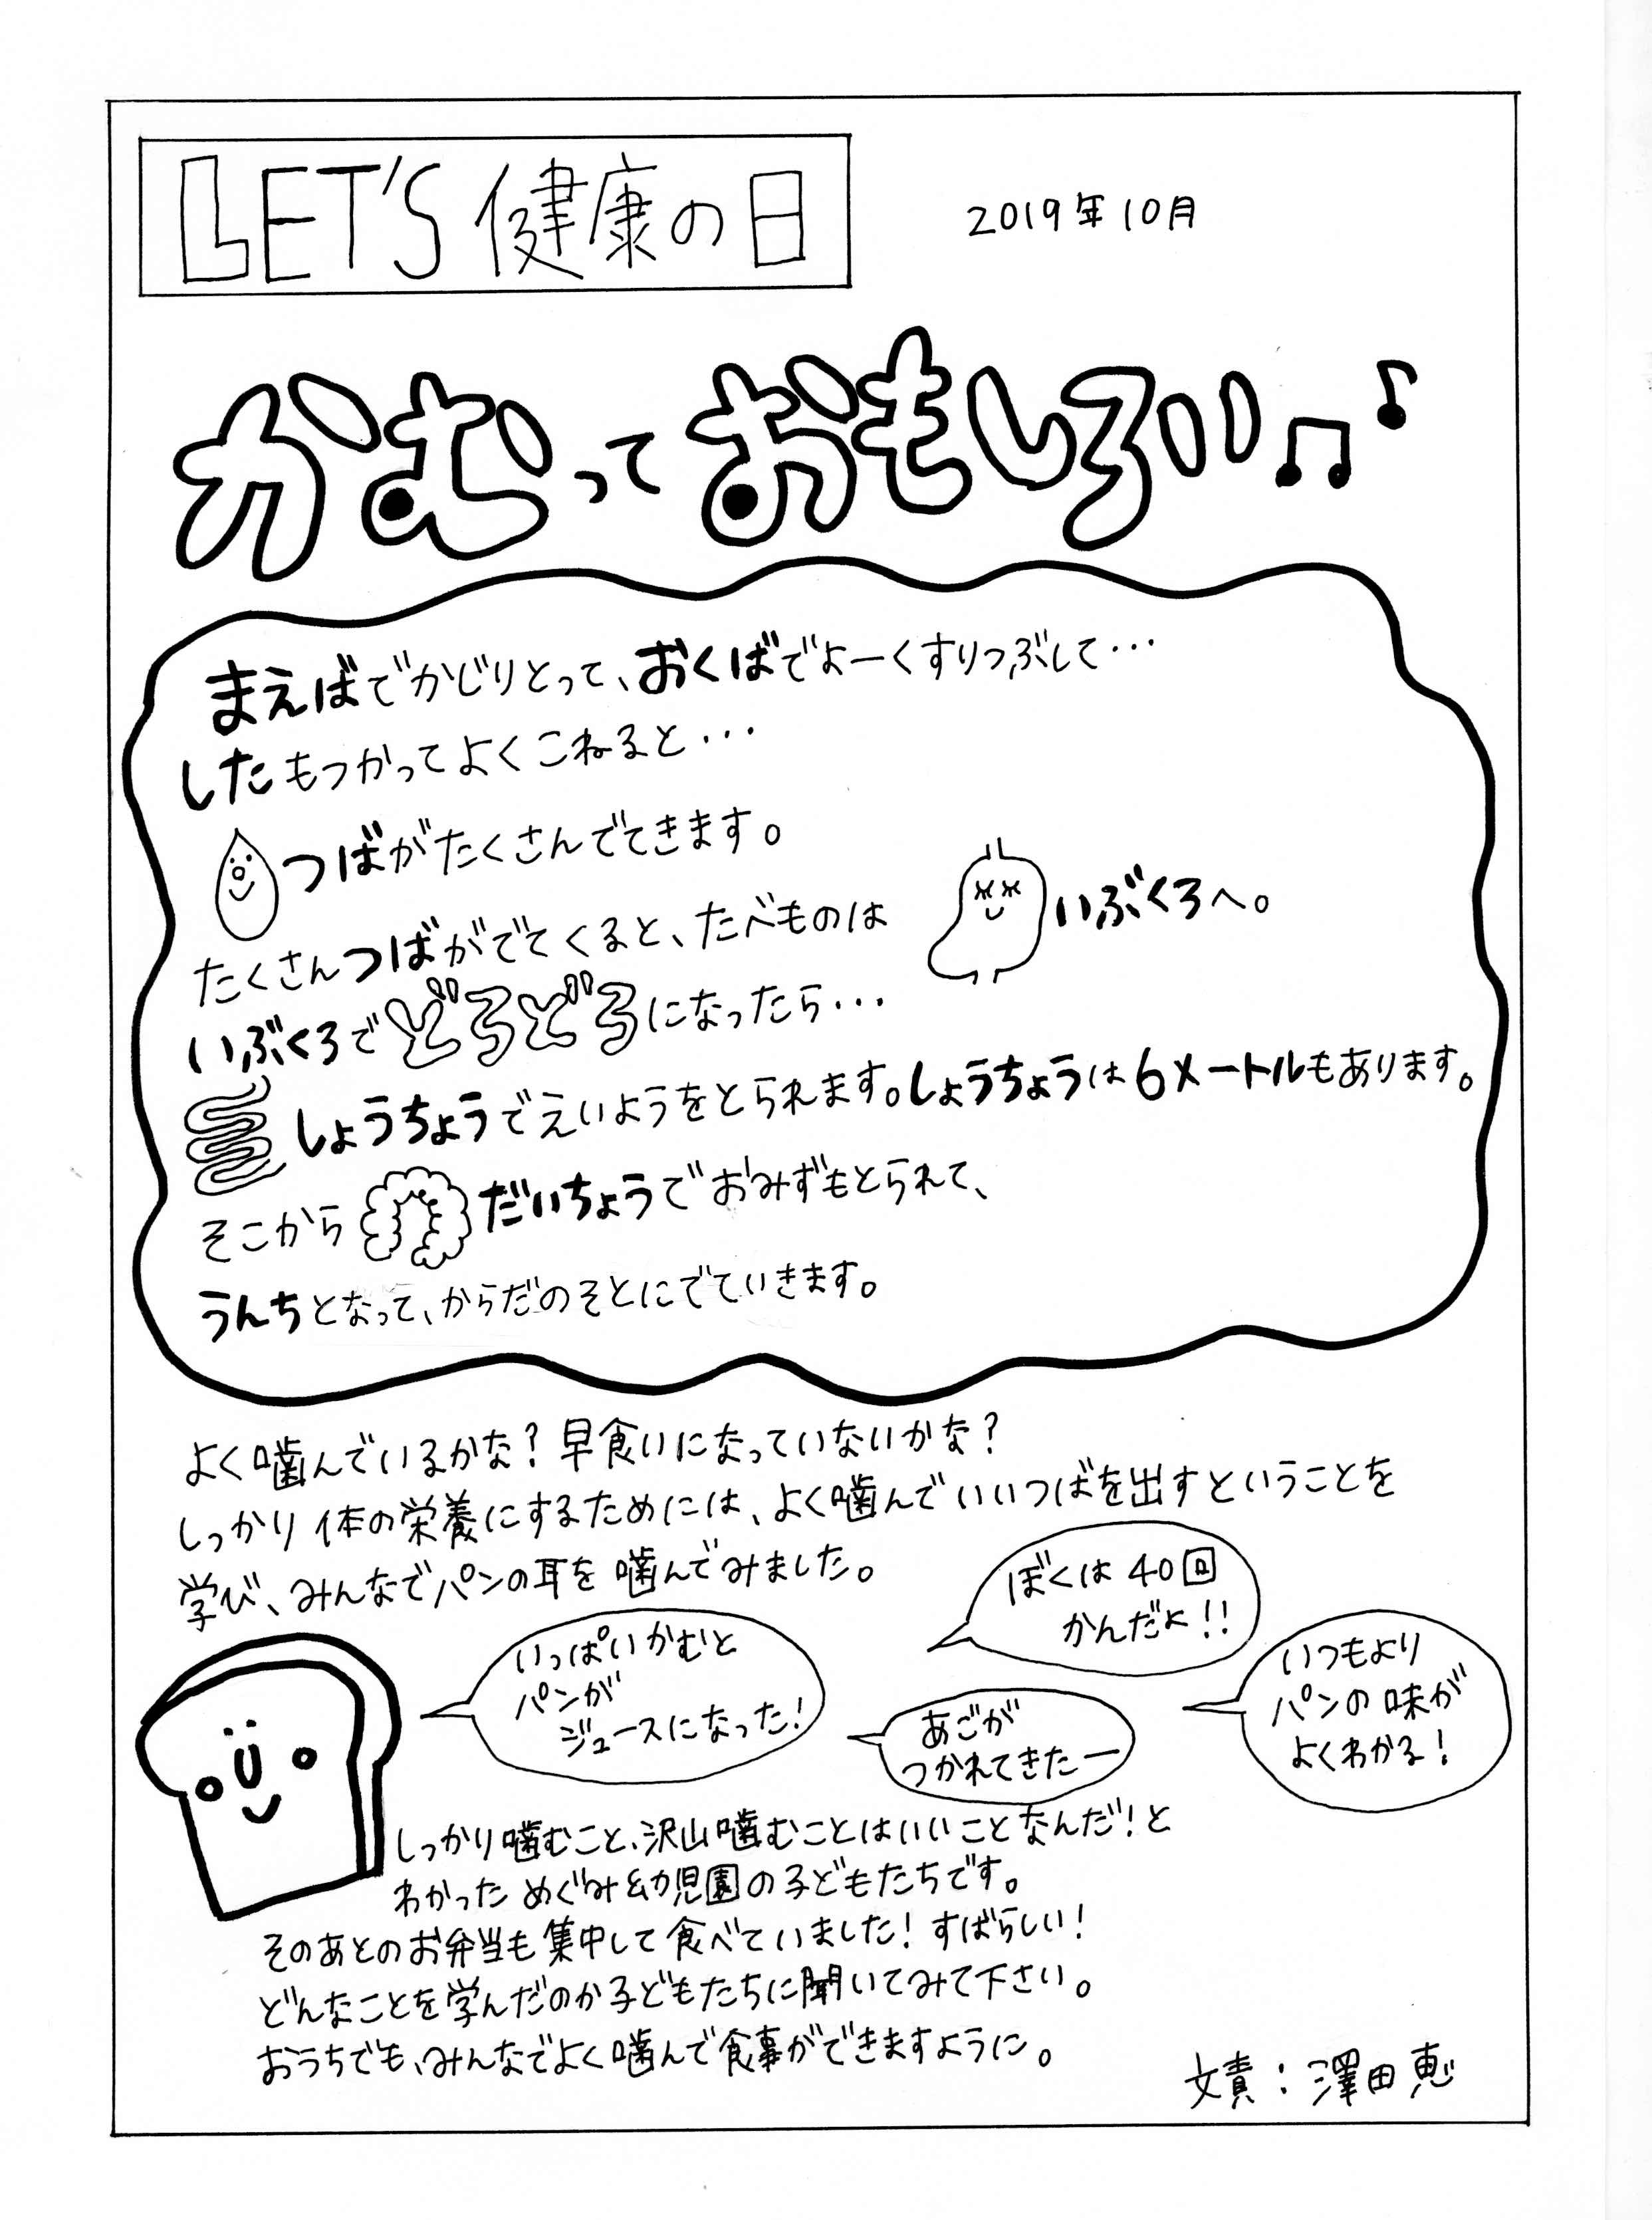 LET'S 健康の日
2019年10月
かむっておもしろい♫♪
まえばでかじりとって、おくばでよーくすりつぶして・・・
したもつかってよくこねると・・・
つばがたくさんでてきます。
たくさんつばがでてくると、たべものは いぶくろへ。
いぶくろでどろどろになったら・・・
しょうちょうでえいようをとられます。しょうちょうは6メートルもあります。
そこから だいちょうでおみずもとられて、
うんちとなって、からだのそとにでていきます。
よく噛んでいるかな?早食いになっていないかな?
しっかり体の栄養にするためには、よく噛んでいいつばを出すということを
学び、みんなでパンの耳を噛んでみました。
ぼくは40回
かんだよ!!
いっぱいかむと
パンが
ジュースになった!
あごが
つかれてきたー
いつもより
パンの味が
よくわかる!
しっかり噛むこと、沢山噛むことはいいことなんだ!と
わかっためぐみ幼児園の子どもたちです。
そのあとのお弁当も集中して食べていました!すばらしい!
どんなことを学んだのか子どもたちに聞いてみて下さい。
おうちでも、みんなでよく噛んで食事ができますように。
文責:澤田恵